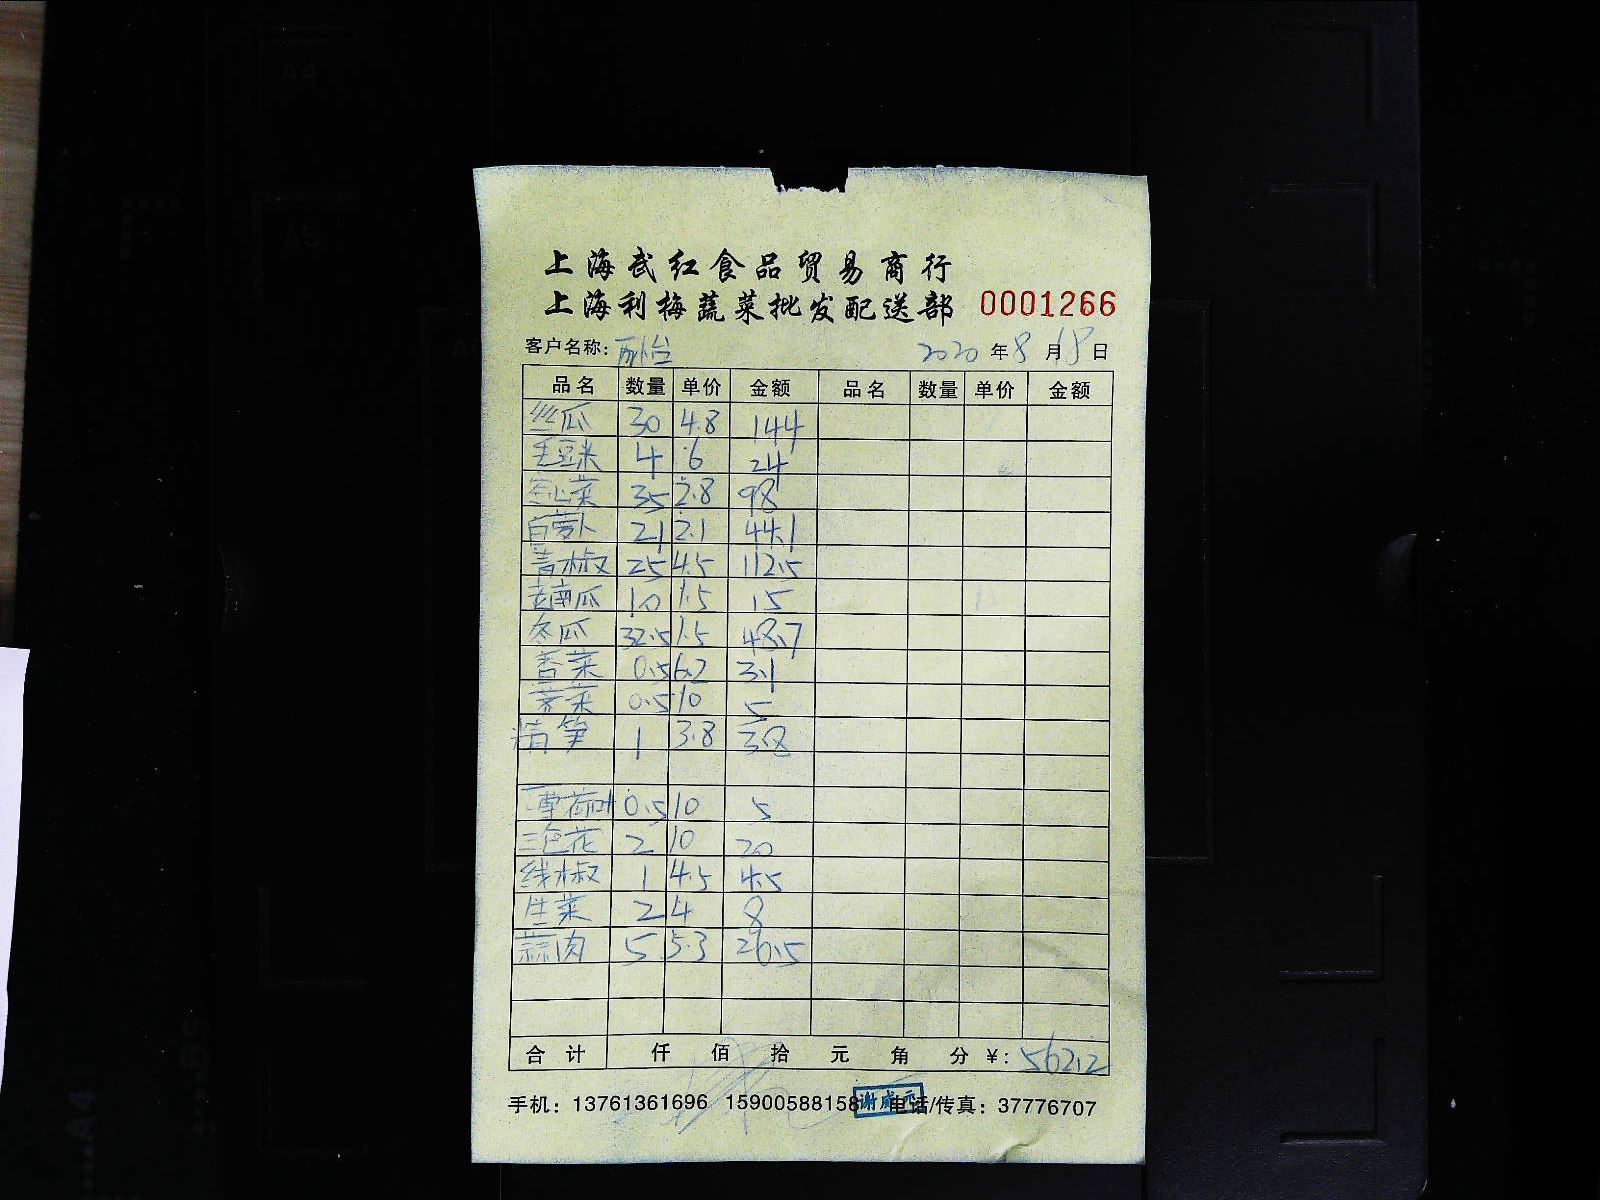 上海武红食品贸易商行
上海利梅蔬菜批发配送部 0001266
客户名称: 2020 年 8 月 18 日
品名 数量 单价 金额 品名 数量 单价 金额
丝瓜 30 4.8 144
毛豆米 4 6 24
卷心菜 35 2.8 98
白萝卜 21 2.1 44.1
青椒 25 4.5 112.5
老南瓜 10 1.5 15
冬瓜 32.5 1.5 48.7
香菜 0.5 6.2 3.1
荠菜 0.5 10 5
精笋 1 3.8 3.8
薄荷叶 0.5 10 5
三色花 2 10 20
线椒 1 4.5 4.5
生菜 2 4 8
蒜肉 5 5.3 26.5
合计 仟 佰 拾 元 角 分 ¥: 562.2
手机: 13761361696 15900588158 电话/传真: 37776707